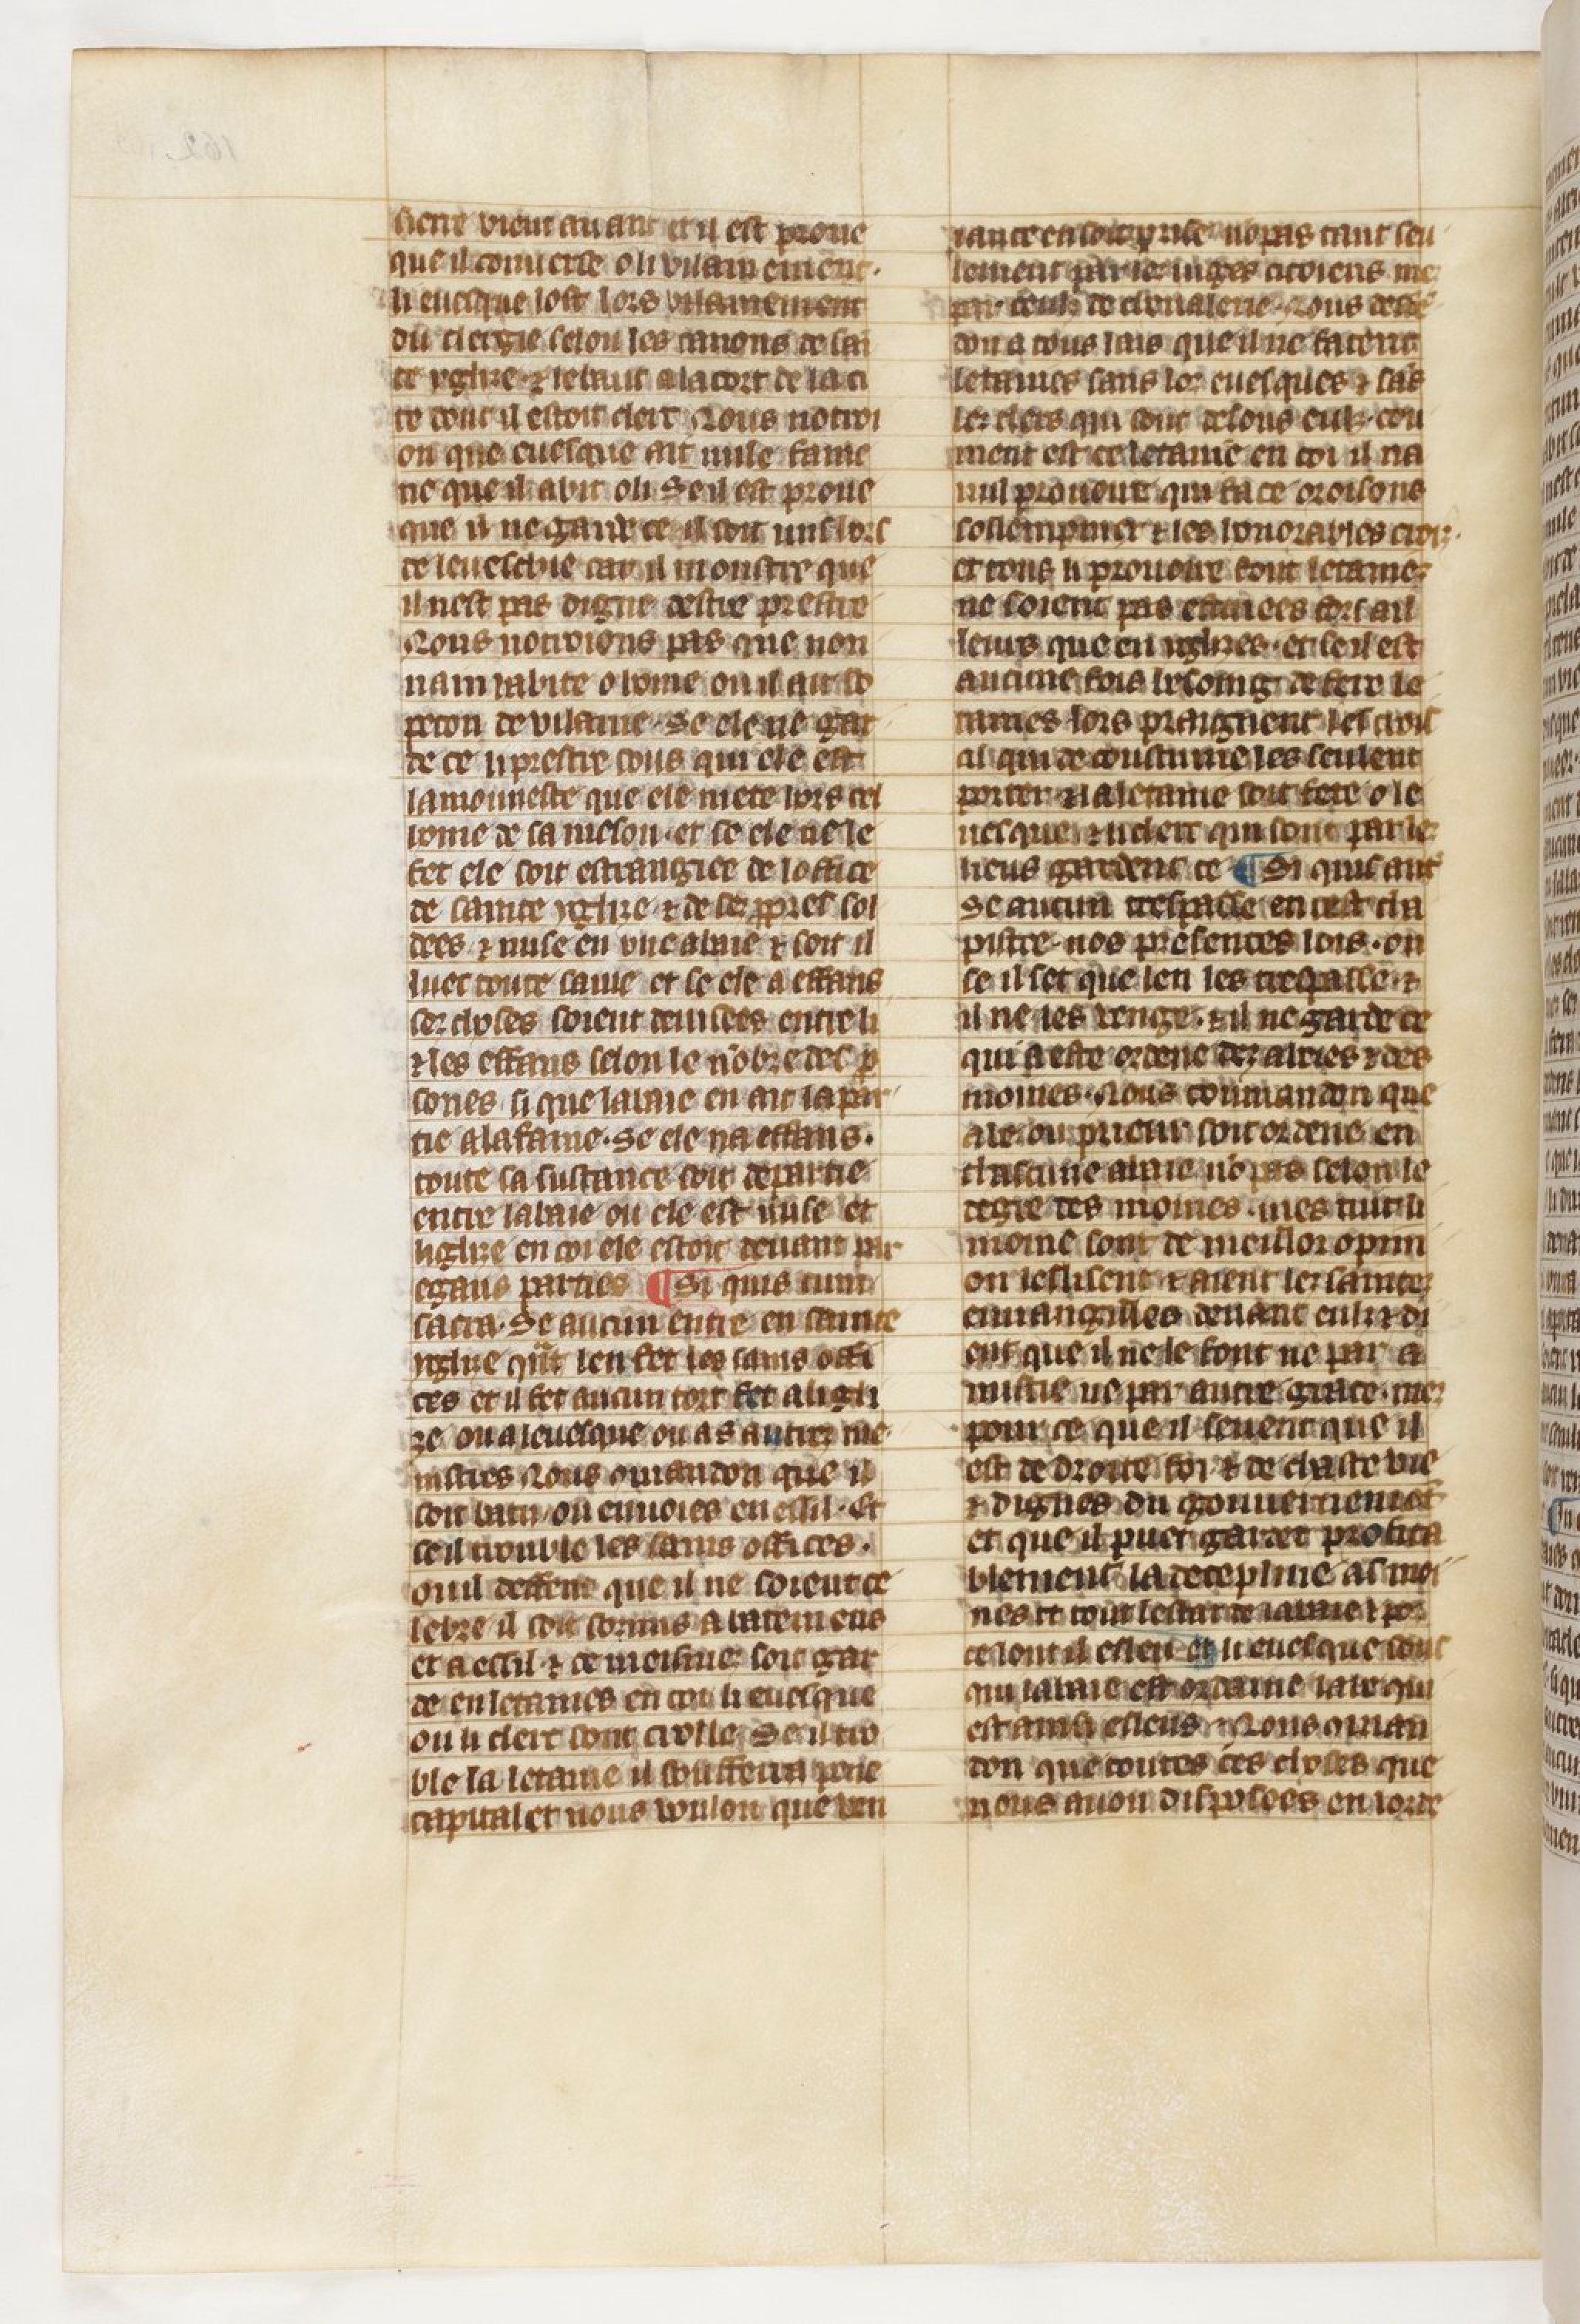 uerte vient auant et il est proue
que il conuerse o li vilainement.
li euesque lost lors vilainement
du clergie selon les canons de sai
te yglize ⁊ le baut a la cort de la ci
te dont il estoit clerc Nous notroi
on que euesque ait nule fame
ne que il abit o li Se il est proue
que il ne garde ce il soit mis hors
de leueschie car il monstre que
il nest pas digne destre prestre
Nous notroions pas que non
nain habite o home ou il ait so
pecon de vilanie. Se ele ne gar
de ce li prestre sous qui ele est
lamonneste que ele mete hors cel
home de sa meson. et se ele ne le
fet ele soit estrangiee de loffice
de sainte yglize ⁊ de ses ppres sol
dees ⁊ mise en vne abaie ⁊ soit il
luec toute sa uie et se ele a effans
ses choses soient deuisees entre li
⁊ les effans selon le nobre des p
sones si que labaie en ait la par
tie a la fame. Se ele na effans.
toute sa sustance soit departie
entre labaie ou ele est mise et
liglize en coi ele estoit deuant par
egaus parties ¶ Si quis cum
sacra. Se aucun entre en sainte
yglize qnt len fet les sains offi
ces et il fet aucun tort fet a ligli
ze ou a leuesque ou as autrez me
nistres Nous omandon que il
soit batu ou enuoies en essil. Et
se il trouble les sains offices.
ou il deffent que il ne soient ce
lebre il soit sozmis a batemens
et a essil ⁊ ce meisme soit gar
de en letanies en coi li euesque
ou li clerc sont croisse Se il tro
ble la letanie il soufferra peine
capital et nous voulon que ven
iance en soit prise no pas tant seu
lement par les iuges citoiens mes
par ceuls de cheualerie. Nous deffe
don a tous lais que il ne facent
letanies sans lor euesques ⁊ sas
les clers qui sont desous euls. con
ment est ce letanie en coi il na
nul prouoire qui face oroisons
sollempnex ⁊ les honorables croiz.
et tous li prouoire font letanies
ne soient pas estuiees fors ail
leurs que en yglizes. et se il est
aucune fois besoing de fere le
tanies lors praignent les crois
cil qui de coustume les seulent
porter ⁊ la letanie soit fete o le
uesque. ⁊ li clerc qui sont par les
lieus gardent ce ¶ Si quis aut
Se aucun trespasse en cest cha
pistre nos presentes lois. ou
se il set que len les trespasse. ⁊
il ne les venge. ⁊ il ne garde ce
qui a este ordene dez abees ⁊ des
moines. Nous conmandon que
abe ou prieur soit ordene en
chascune abaie no pas selon le
degre des moines. mes tuit li
moine sont de meillor opini
on leslisent ⁊ aient les saintes
euuangilles deuant euls ⁊ di
ent que il ne le font ne par a
mistie ne par autre grace. mes
pour ce que il seuent que il
est de droite foi ⁊ de chaste vie
⁊ dignes du gouuernement
et que il puet garder profita
blement la deceplinne as moi
nes et tout lestat de labaie ⁊ por
ce lont il esleu et li euesque sous
qui labaie est ordaine labe qui
est ainsi esleus. Nous oman
don que toutes ces choses que
nous auon disposees en lorde